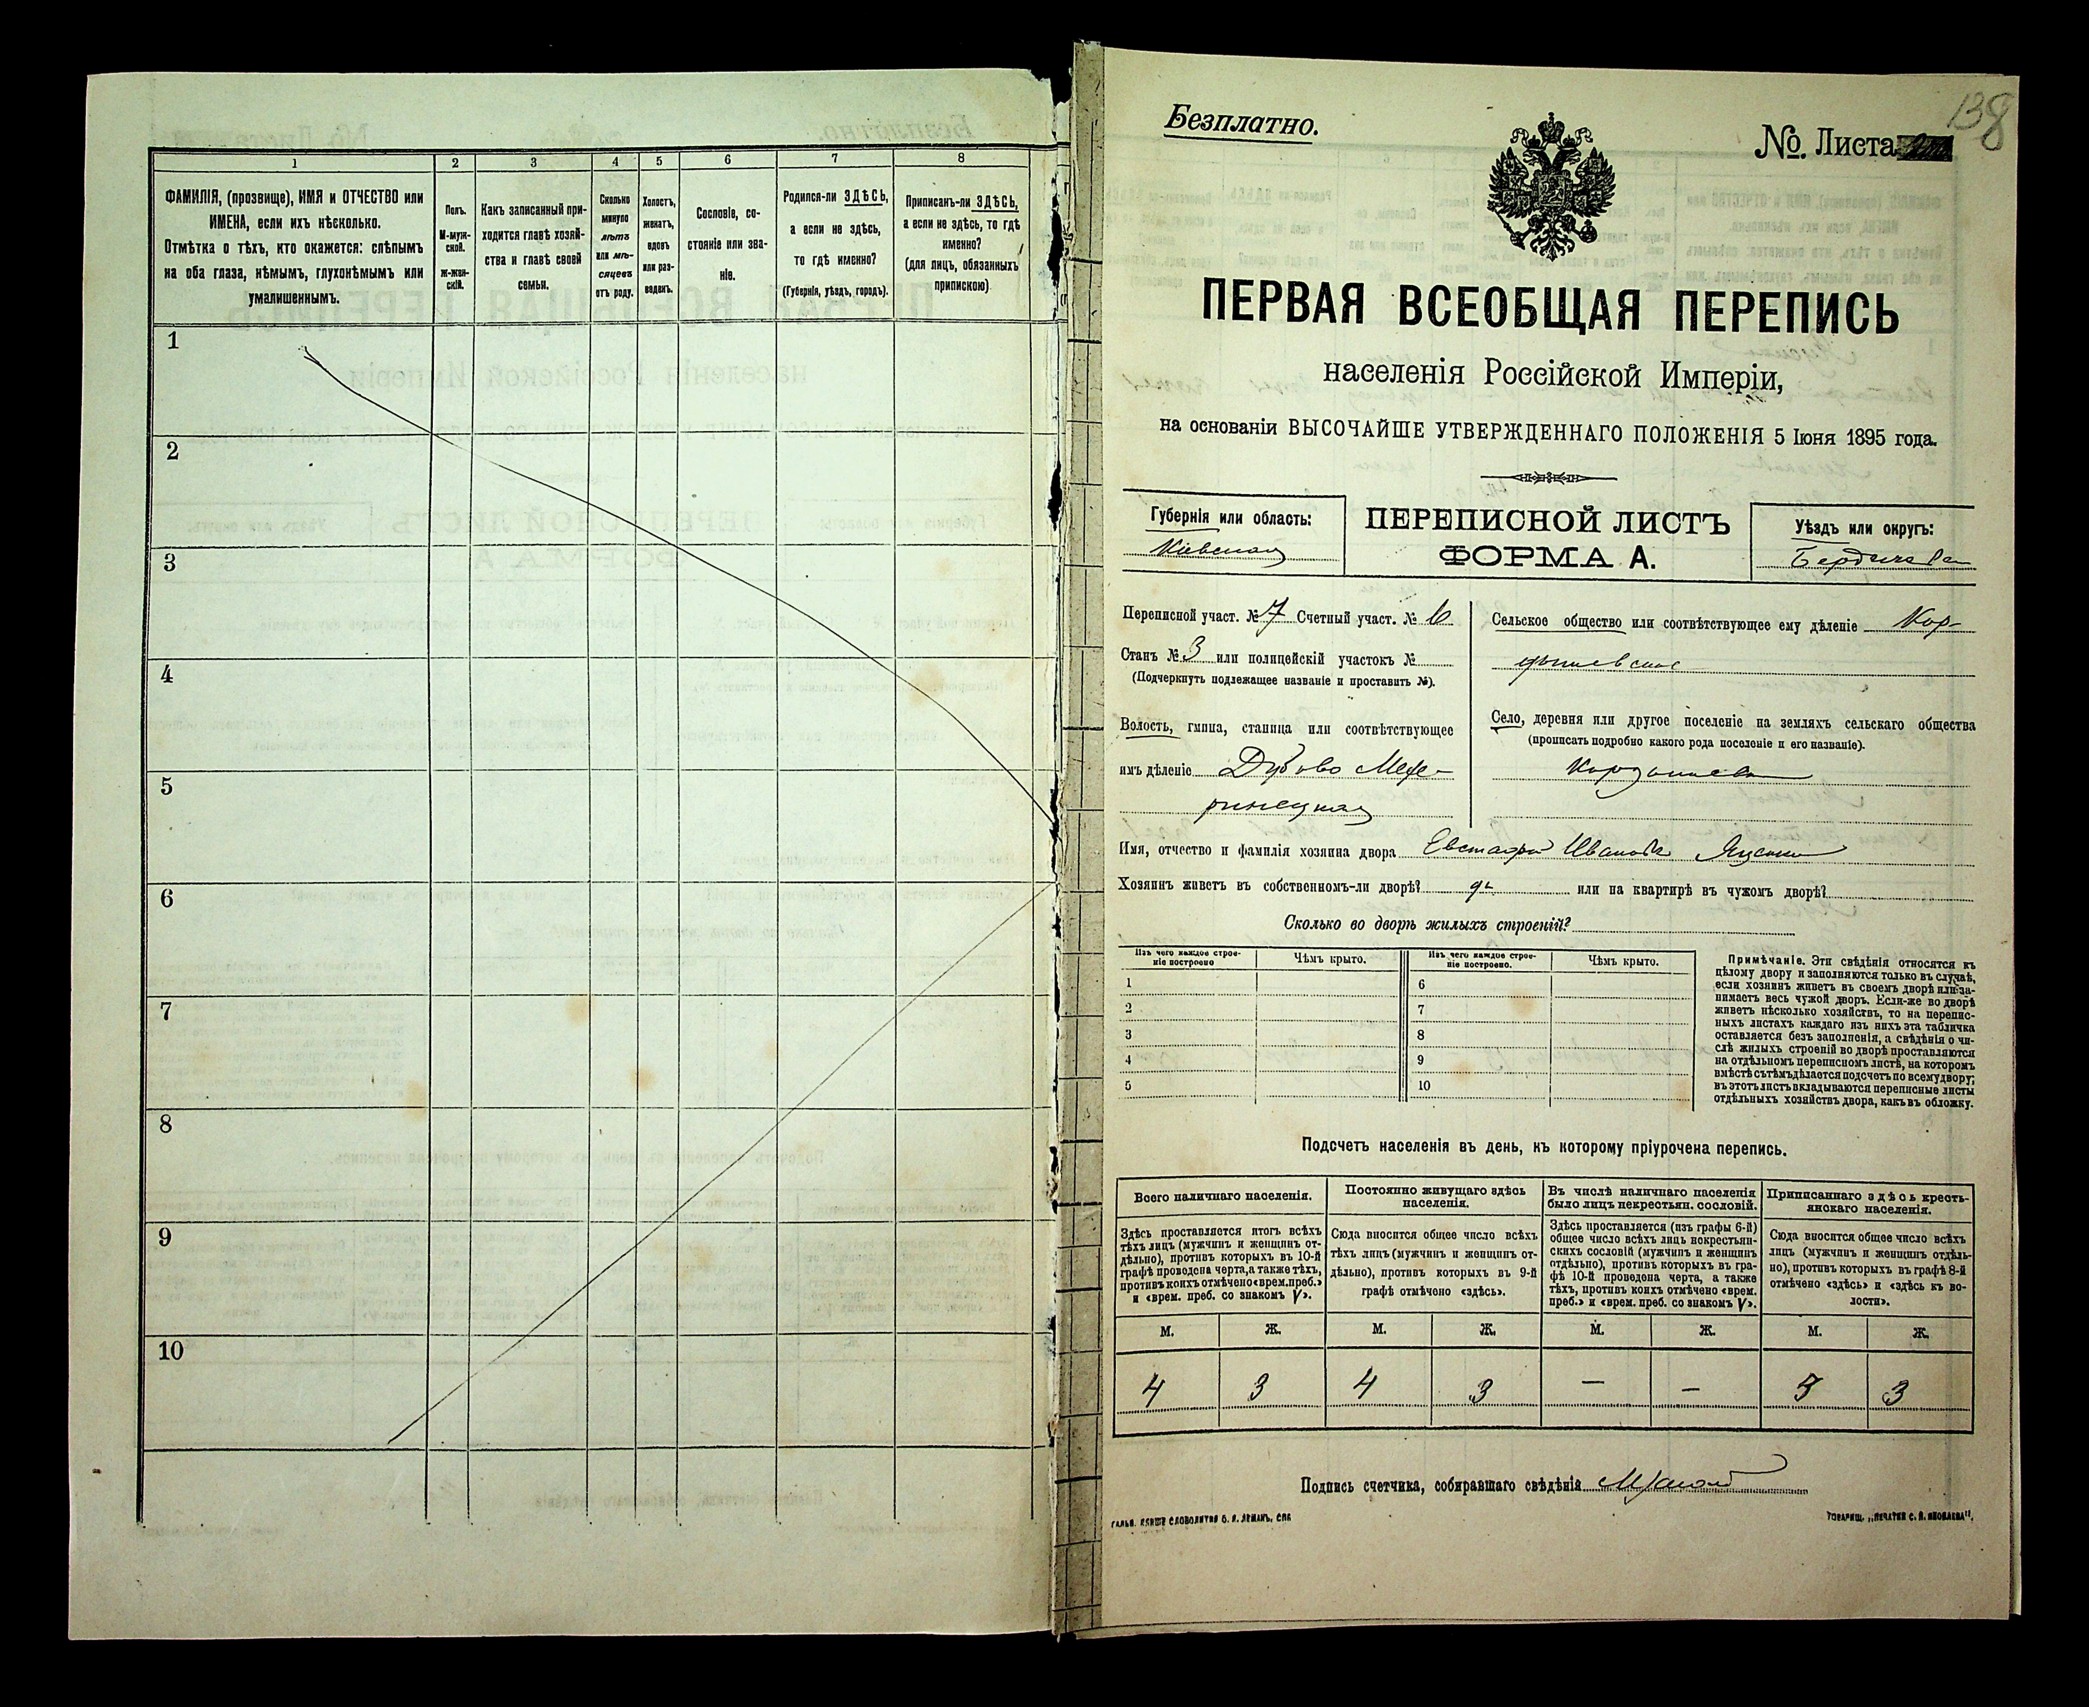 1 2 3 4 5 6 7 8
ФАМИЛІЯ, (прозвище), ИМЯ и ОТЧЕСТВО или
ИМЕНА, если ихъ нѣсколько.
Отмѣтка о тѣхъ, кто окажется: слѣпымъ
на оба глаза, нѣмымъ, глухонѣмымъ или
умалишеннымъ.
Полъ.
М-муж-
ской.
ж-жен-
скій.
Какъ записанный при-
ходится главѣ хозяй-
ства и главѣ своей
семьи.
Сколько
минуло
лѣтъ
или мѣ-
сяцевъ
отъ роду.
Холостъ,
женатъ,
вдовъ
или раз-
веденъ.
Сословіе, со-
стояніе или зва-
ніе.
Родился-ли ЗДѢСЬ,
а если не здѣсь,
то гдѣ именно?
(Губернія, уѣздъ, городъ).
Приписанъ-ли ЗДѢСЬ,
а если не здѣсь, то гдѣ
именно?
(для лицъ, обязанныхъ
припискою)
1
2
3
4
5
6
7
8
9
10
138
Безплатно.
№. Листа
ПЕРВАЯ ВСЕОБЩАЯ ПЕРЕПИСЬ
населенія Россійской Имперіи,
на основаніи ВЫСОЧАЙШЕ УТВЕРЖДЕННАГО ПОЛОЖЕНІЯ 5 Іюня 1895 года.
Губернія или область:
Кіевская
ПЕРЕПИСНОЙ ЛИСТЪ
ФОРМА А.
Уѣздъ или округъ:
Переписной участ. № 7 Счетный участ. № 6
Станъ № 3 или полицейскій участокъ №
(Подчеркнуть подлежащее названіе и проставить №).
Волость, гмина, станица или соотвѣтствующее
имъ дѣленіе Дубово Меше-
ринецкая
Сельское общество или соотвѣтствующее ему дѣленіе Кор-
Село, деревня или другое поселеніе на земляхъ сельскаго общества
(прописать подробно какого рода поселеніе и его названіе).
Имя, отчество и фамилія хозяина двора Евстафій Ивановъ
Хозяинъ живетъ въ собственномъ-ли дворѣ? да или на квартирѣ въ чужомъ дворѣ?
Сколько во дворѣ жилыхъ строеній?
Изъ чего каждое строе-
ніе построено
Чѣмъ крыто.
Изъ чего каждое строе-
ніе построено.
Чѣмъ крыто.
1 6
2 7
3 8
4 9
5 10
Примѣчаніе. Эти свѣдѣнія относятся къ
цѣлому двору и заполняются только въ случаѣ,
если хозяинъ живетъ въ своемъ дворѣ или за-
нимаетъ весь чужой дворъ. Если-же во дворѣ
живетъ нѣсколько хозяйствъ, то на перепис-
ныхъ листахъ каждаго изъ нихъ эта табличка
оставляется безъ заполненія, а свѣдѣнія о чи-
слѣ жилыхъ строеній во дворѣ проставляются
на отдѣльномъ переписномъ листѣ, на которомъ
вмѣстѣ съ тѣмъ дѣлается подсчетъ по всему двору;
въ этотъ листъ вкладываются переписные листы
отдѣльныхъ хозяйствъ двора, какъ въ обложку.
Подсчетъ населенія въ день, къ которому пріурочена перепись.
Всего наличнаго населенія.
Здѣсь проставляется итогъ всѣхъ
тѣхъ лицъ (мужчинъ и женщинъ от-
дѣльно), противъ которыхъ въ 10-й
графѣ проведена черта, а также тѣхъ,
противъ коихъ отмѣчено «врем. преб.»
и «врем. преб. со знакомъ V».
Постоянно живущаго здѣсь
населенія.
Сюда вносится общее число всѣхъ
тѣхъ лицъ (мужчинъ и женщинъ от-
дѣльно), противъ которыхъ въ 9-й
графѣ отмѣчено «здѣсь».
Въ числѣ наличнаго населенія
было лицъ некрестьян. сословій.
Здѣсь проставляется (изъ графы 6-й)
общее число всѣхъ лицъ некрестьян-
скихъ сословій (мужчинъ и женщинъ
отдѣльно), противъ которыхъ въ гра-
фѣ 10-й проведена черта, а также
тѣхъ, противъ коихъ отмѣчено «врем.
преб.» и «врем. преб. со знакомъ V».
Приписаннаго здѣсь кресть-
янскаго населенія.
Сюда вносится общее число всѣхъ
лицъ (мужчинъ и женщинъ отдѣль-
но), противъ которыхъ въ графѣ 8-й
отмѣчено «здѣсь» и «здѣсь къ во-
лости».
М. Ж. М. Ж. М. Ж. М. Ж.
4 3 4 3 — — 5 3
Подпись счетчика, собиравшаго свѣдѣнія